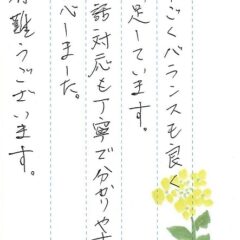 ごくバランスも良く
足しています。
話対応も丁寧で分かりやす
心しました。
難うございます。